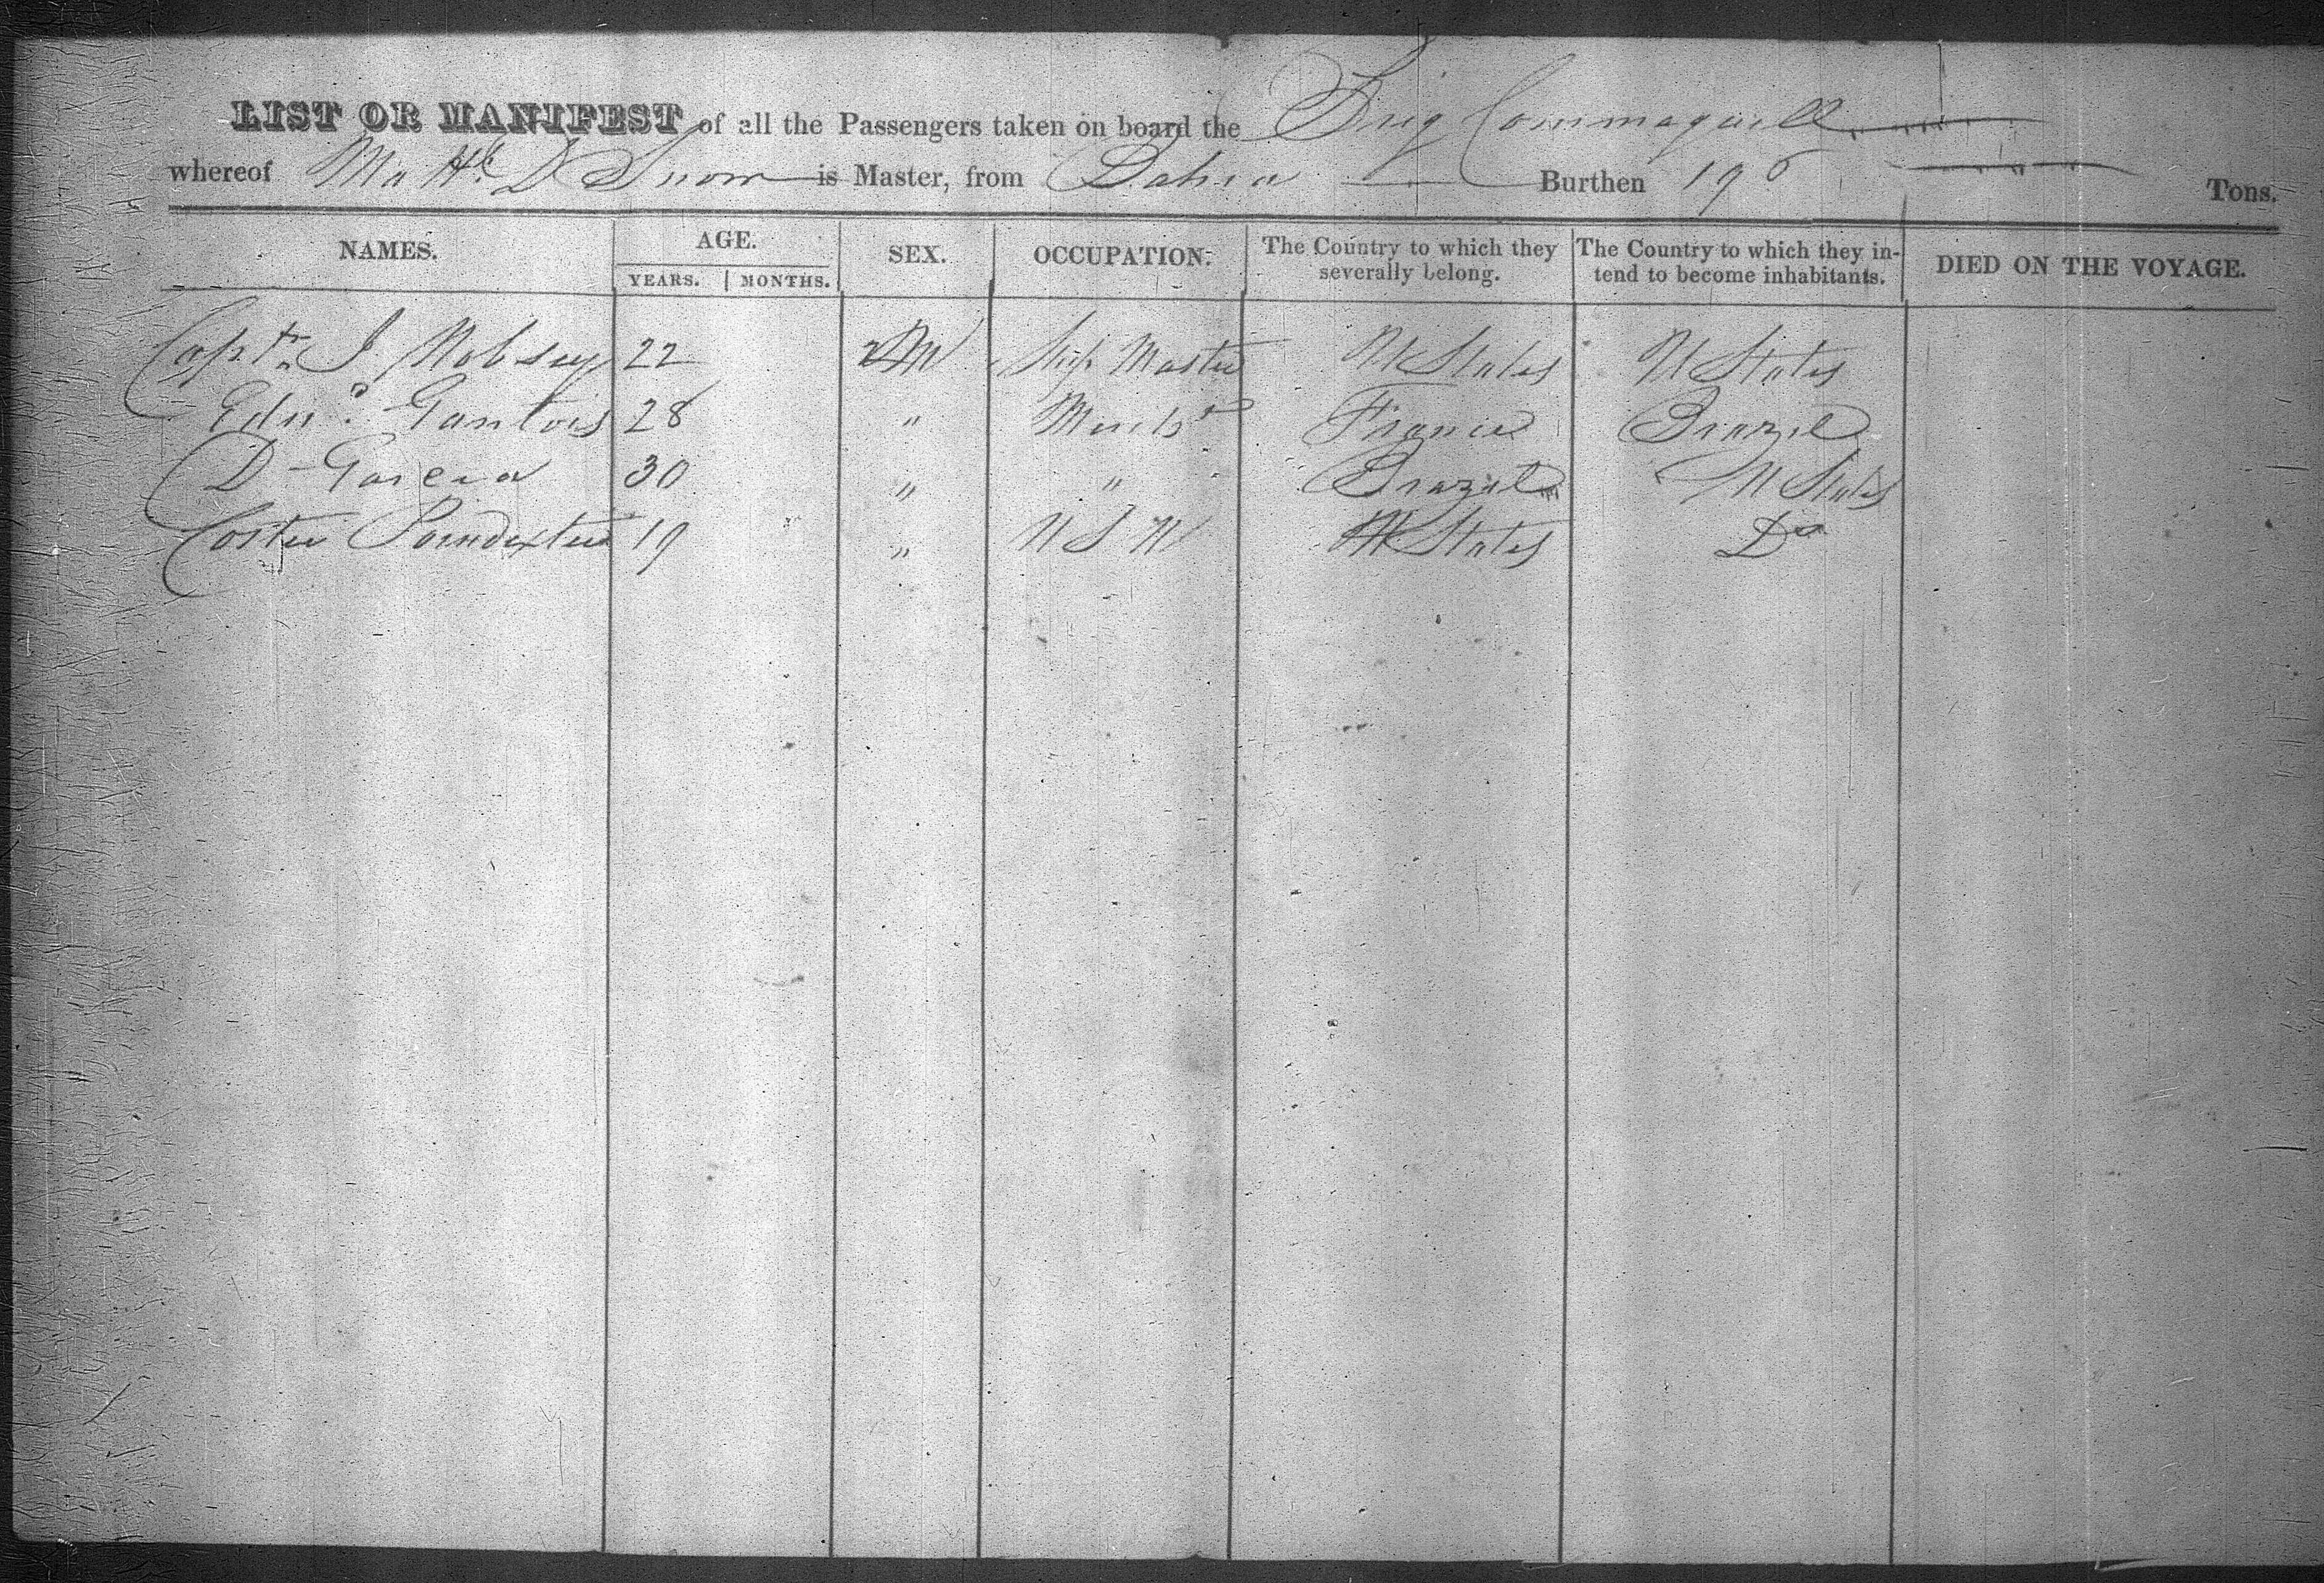 LIST OR MANIFEST of all the Passengers taken on board the Brig Commaquid
whereof Matth. D Snow is Master, from Bahia Burthen 196 Tons.
NAMES. AGE. SEX. OCCUPATION. The Country to which they severally belong. The Country to which they intend to become inhabitants. DIED ON THE VOYAGE.
YEARS. MONTHS.
Captn J 22 M Ship Master U States U States
Edw. Gantois 28 " Mercht France Brazil
D Garcia 30 " " Brazil U States
Poindexter 19 " U S N U States Do